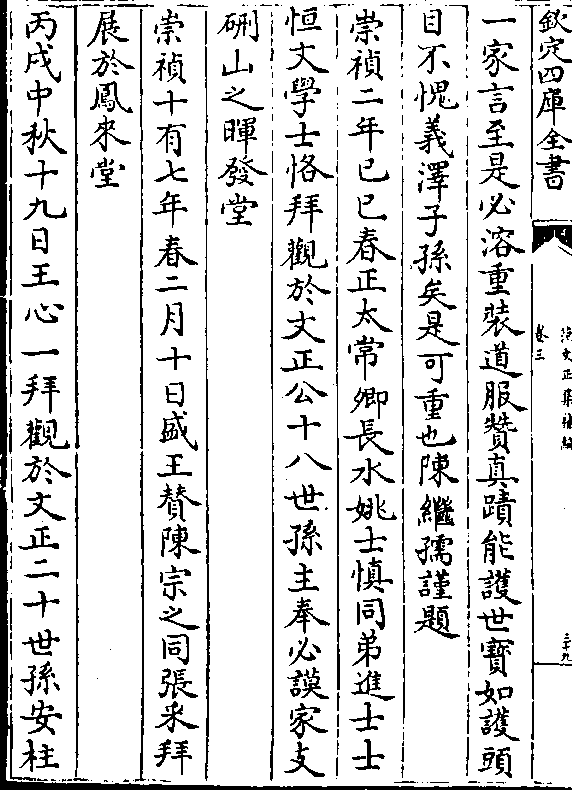 欽定四庫全書
范文正集補編
卷三
三十九
一家言至是必溶重裝道服贊真蹟能護世寳如護頭
目不愧義澤子孫矣是可重也陳繼孺謹題
崇禎二年己巳春正太常卿長水姚士慎同弟進士士
恒文學士恪拜觀於文正公十八世孫主奉必謨家支
硎山之暉發堂
崇禎十有七年春二月十日盛王賛陳宗之同張采拜
展於鳳來堂
丙戌中秋十九日王心一拜觀於文正二十世孫安柱